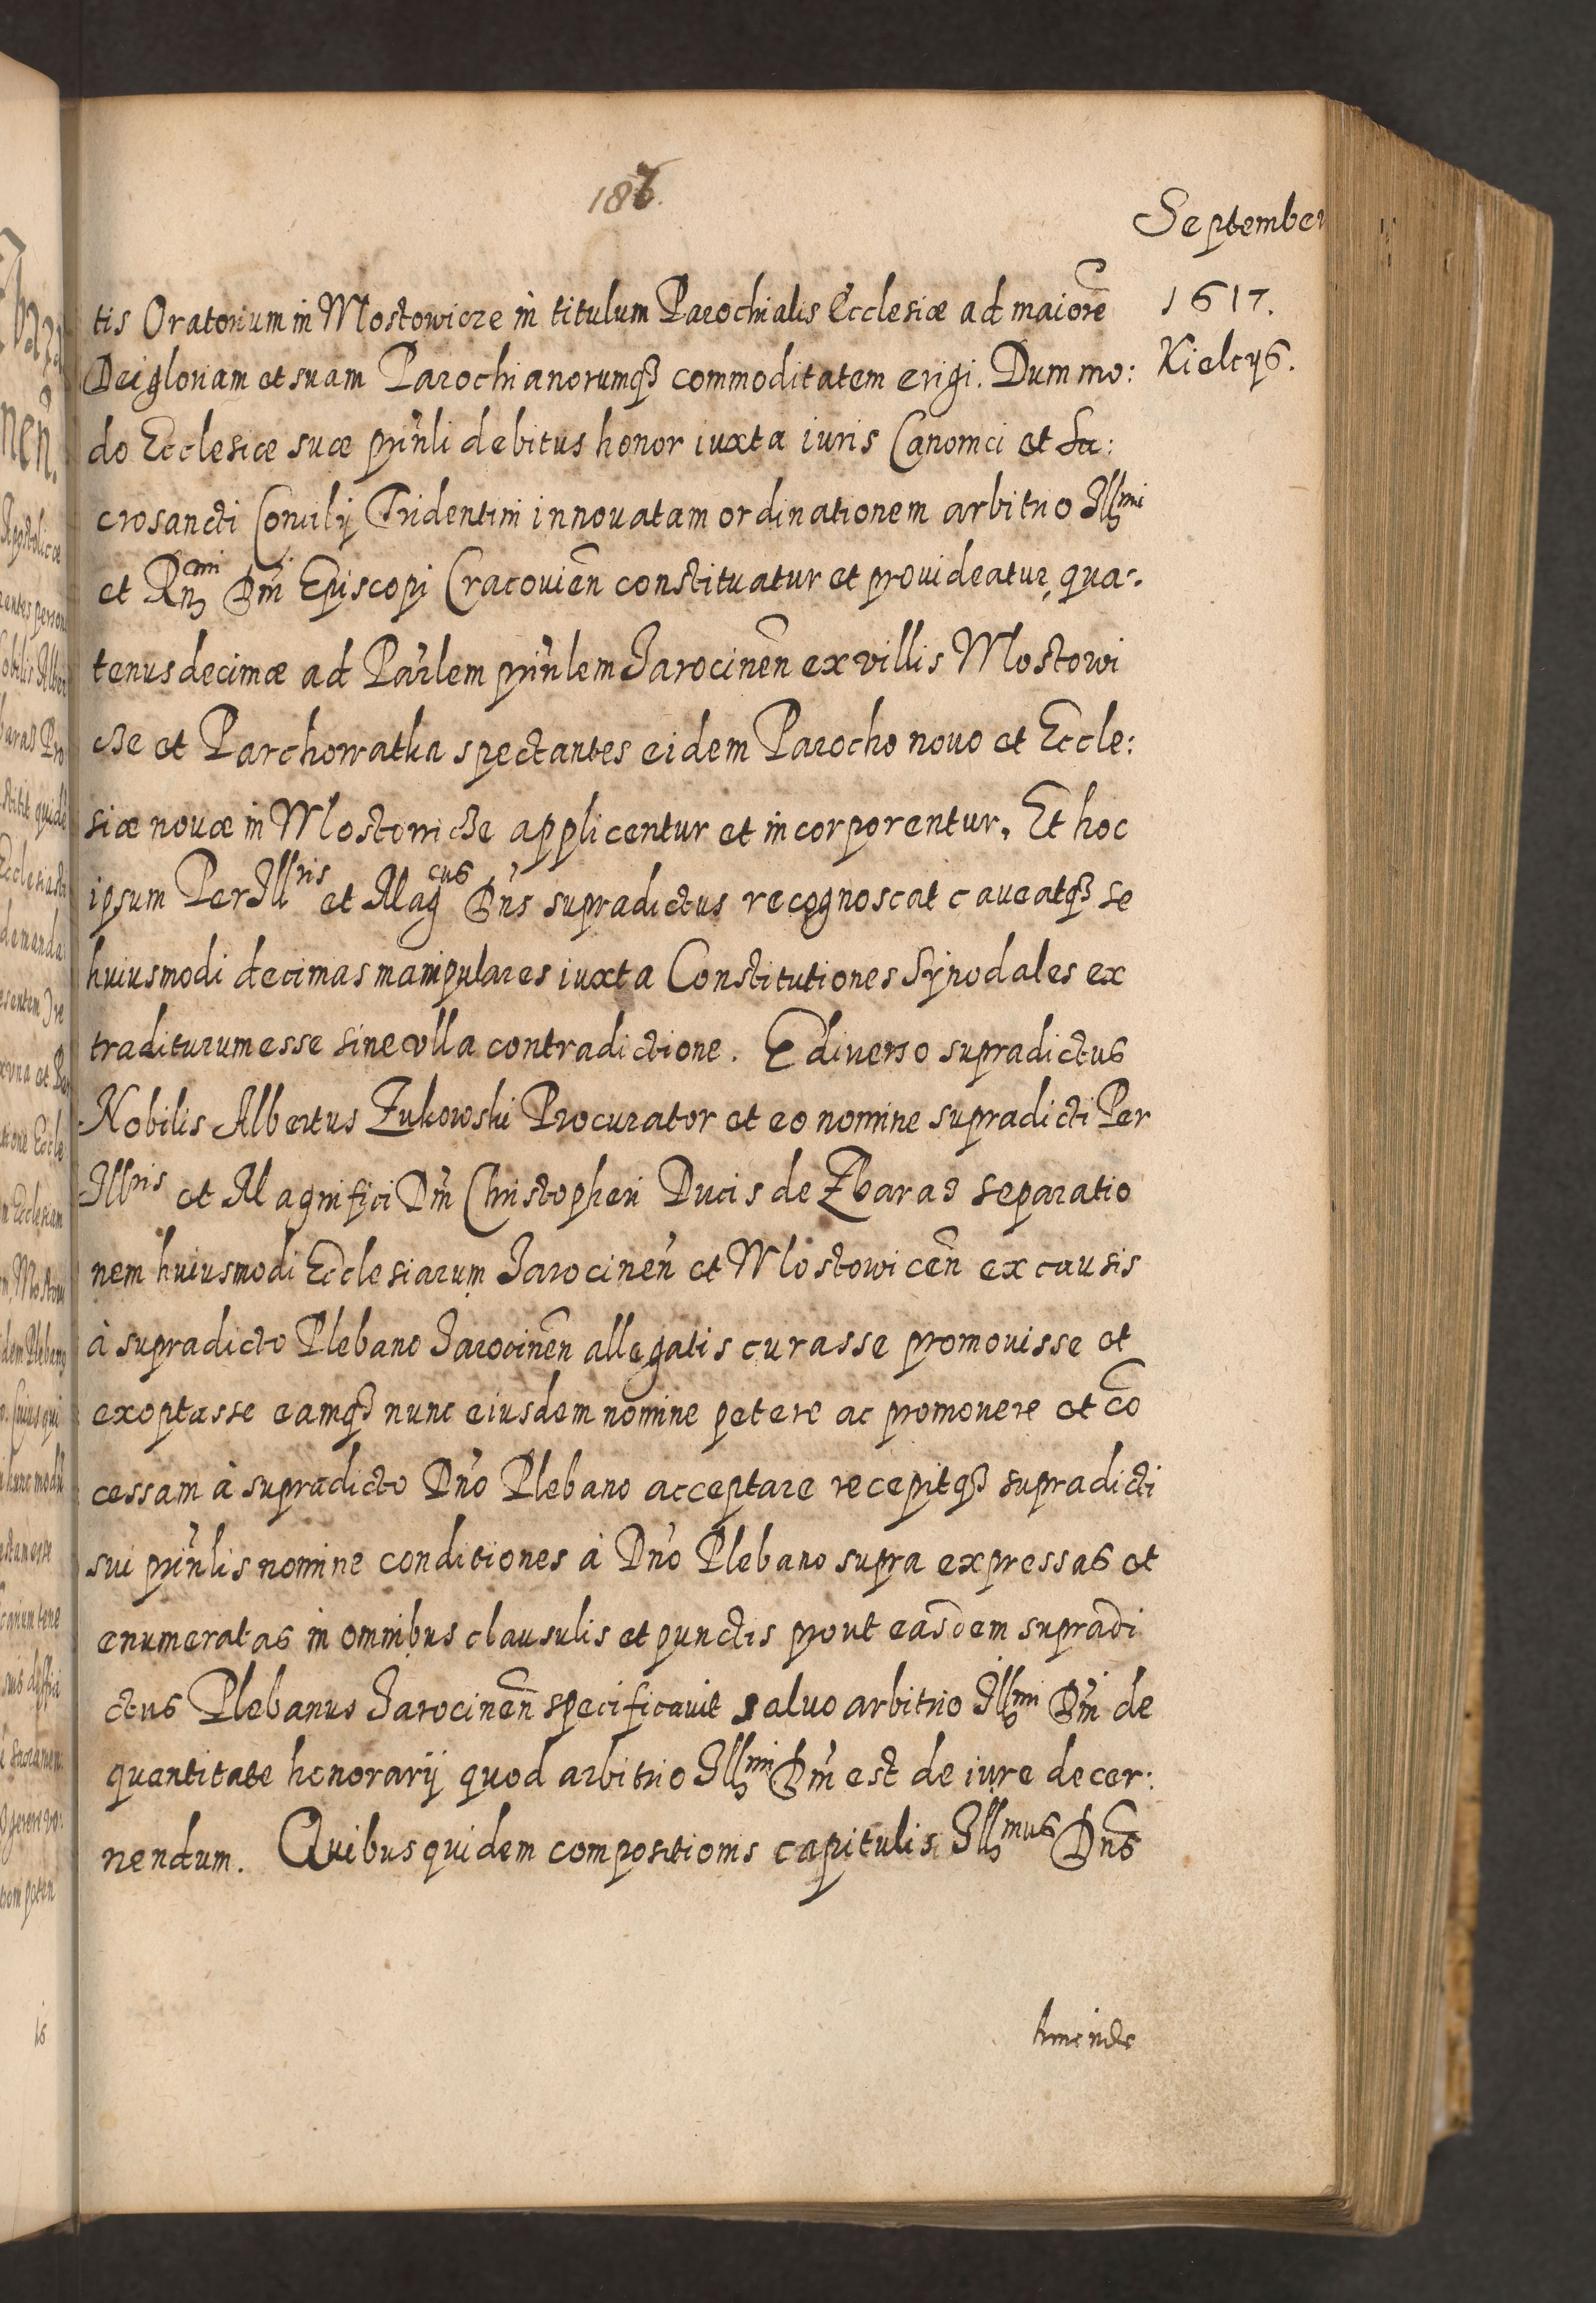 187.
September
1617.
Kielcÿs.
tis Oratorium in Mostowicze in titulum Parochialis Ecclesiæ ad maiorē
Dei gloriam et suam Parochianorumqȝ commoditatem erigi. Dum mo:
do Ecclesiæ suæ prin̄li debitus honor iuxta iuris Canonici et Sa:
crosancti Concilÿ Tridentini innouatam ordinationem arbitrio Illmi
et Rndmi Dni Episcopi Cracouien̄ constituatur et prouideatur, qua:
tenus decimæ ad Par̄lem prin̄lem Jarocinen̄ ex villis Mostowi
cze et Parchowatka spectantes eidem Parocho nouo et Eccle:
siæ nouæ in Mostowicze applicentur et incorporentur. Et hoc
ipsum Per Illris et Magcus Dn̄s supradictus recognoscat caueatqȝ se
huiusmodi decimas manipulares iuxta Constitutiones Synodales ex
traditurum esse sine vlla contradictione. E diuerso supradictus
Nobilis Albertus Zukowski Procurator et eo nomine supradicti Per
Illris et Magnifici Dni Christopheri Ducis de Zbaraz separatio
nem huiusmodi Ecclesiarum Jarocinen̄ et Mostowicen̄ ex causis
à supradicto Plebano Jarocinen̄ allegatis curasse promouisse et
exoptasse eamqȝ nunc eiusdem nomine petere ac promouere et cō
cessam à supradicto Dn̄o Plebano acceptare recepitqȝ supradicti
sui prin̄lis nomine conditiones à Dn̄o Plebano supra expressas et
enumeratas in omnibus clausulis et punctis prout easdem supradi
ctus Plebanus Jarocinen̄ specificauit saluo arbitrio Illmi Dni de
quantitate honorarÿ quod arbitrio Illmi Dni est de iure decer:
nendum. Quibus quidem compositionis capitulis Illmus Dn̄s